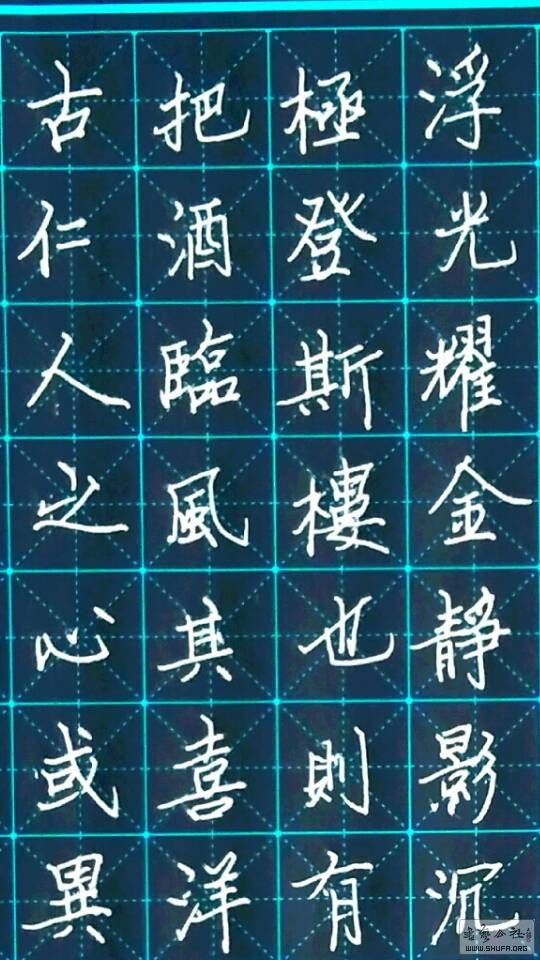 浮光耀金靜影沉
極登斯樓也則有
把酒臨風其喜洋
古仁人之心或異
WWW.SHUFA.ORG